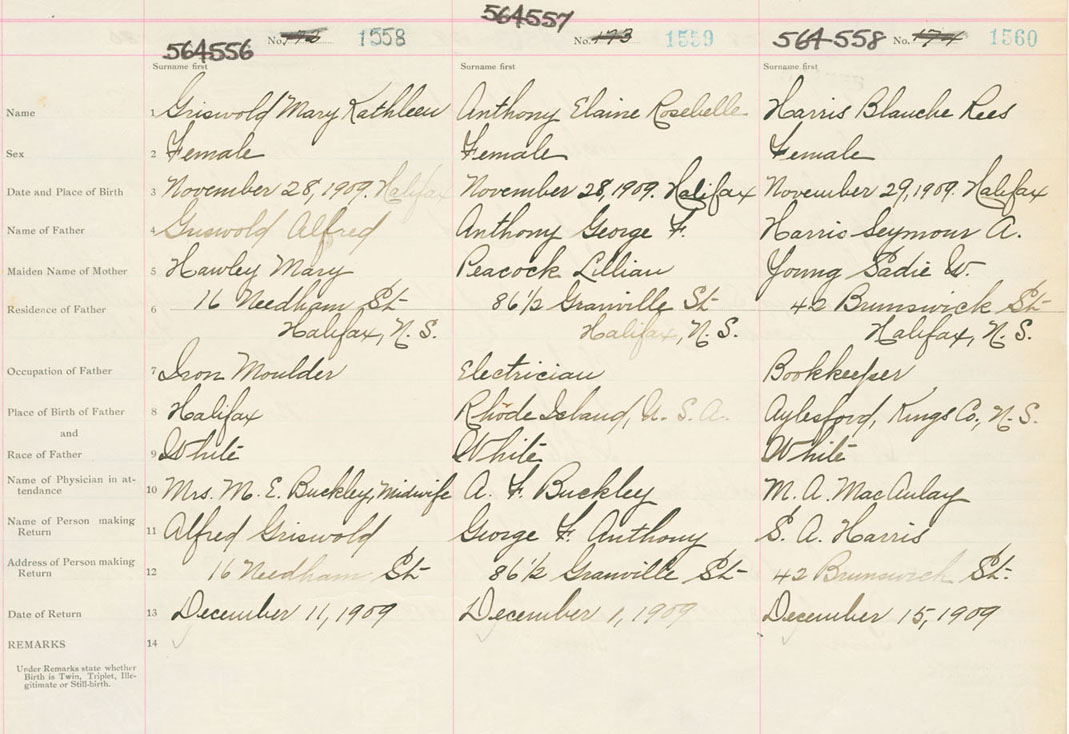 564557
564556 No. 172 1558 No. 173 1559 564-558 No. 174 1560
Surname first Surname first Surname first
Name 1 Griswold Mary Kathleen Anthony Elaine Rosebelle Harris Blanche Rees
Sex 2 Female Female Female
Date and Place of Birth 3 November 28, 1909. Halifax November 28, 1909. Halifax November 29, 1909. Halifax
Name of Father 4 Griswold Alfred Anthony George F. Harris Seymour A.
Maiden Name of Mother 5 Hawley Mary Peacock Lillian Young Sadie W.
Residence of Father 6 16 Needham St 86 1/2 Granville St 42 Brunswick St
Halifax, N. S. Halifax, N. S. Halifax, N. S.
Occupation of Father 7 Iron Moulder Electrician Bookkeeper
Place of Birth of Father 8 Halifax Rhode Island, U. S. A. Aylesford, Kings Co., N. S.
and
Race of Father 9 White White White
Name of Physician in at-
tendance 10 Mrs. M. E. Buckley, Midwife A. F. Buckley M. A. MacAulay
Name of Person making
Return 11 Alfred Griswold George F. Anthony S. A. Harris
Address of Person making
Return 12 16 Needham St 86 1/2 Granville St 42 Brunswick St.
Date of Return 13 December 11, 1909 December 1, 1909 December 15, 1909
REMARKS 14
Under Remarks state whether
Birth is Twin, Triplet, Ille-
gitimate or Still-birth.